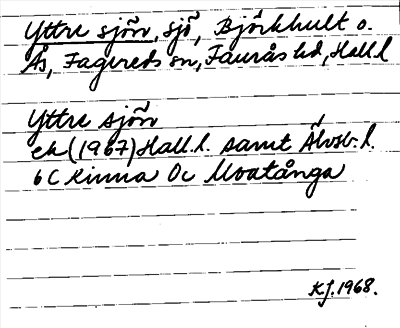 Yttre sjön, sjö, Björkhult o.
Ås, Fagereds sn, Faurås hd, Hall.l
Yttre sjön
ek (1967) Hall.l. samt Älvsb.l.
6C Kinna 0c Moatånga
KJ. 1968.